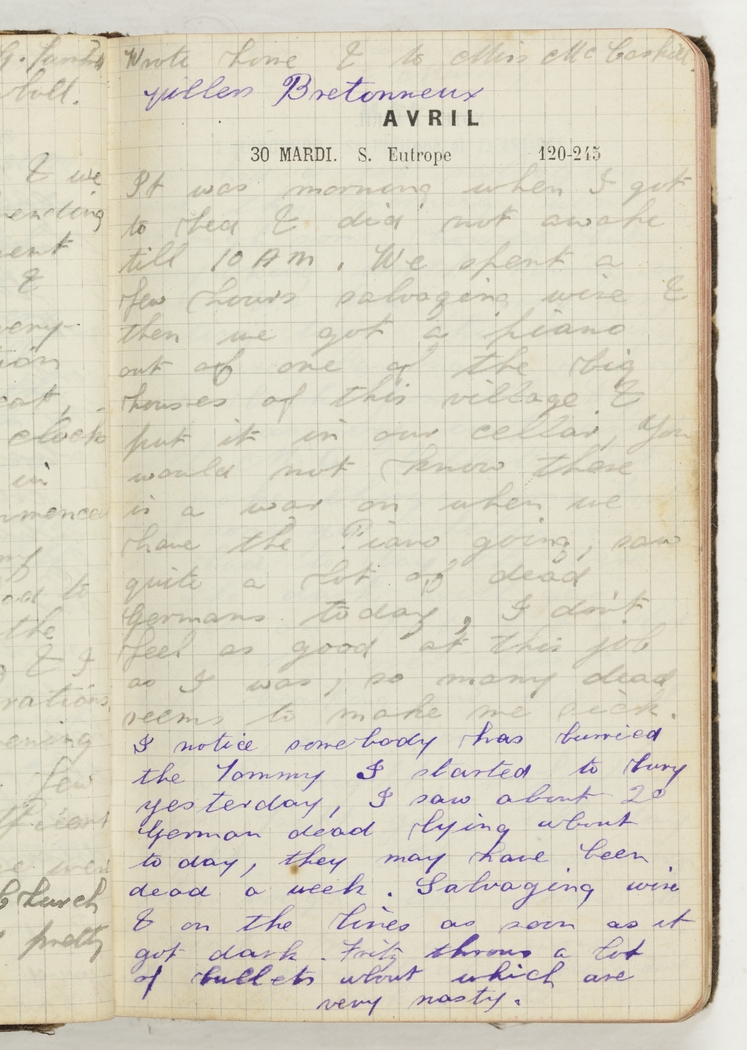 G. Smith
bolt.
& we
ending
ent
&
very-
ion
out,
clock
in
mmenced
my
ad to
the
& I
rations
ening
few
were
Church
pretty
Wrote home & to Miss McCaskill.
Villers Bretonneux
AVRIL
30 MARDI. S. Eutrope 120-245
It was morning when I got
to bed & did not awake
till 10 AM. We spent a
few hours salvaging wire &
then we got a piano
out of one of the big
houses of this village &
put it in our cellar, You
would not know there
is a war on when we
have the Piano going, saw
quite a lot of dead
Germans today, I don't
feel as good at this job
as I was, so many dead
seems to make me sick.
I notice somebody has burried
the Tommy I started to bury
yesterday, I saw about 20
German dead lying about
to day, they may have been
dead a week. Salvaging wire
& on the lines as soon as it
got dark. Fritz throws a lot
of bullets about which are
very nasty.